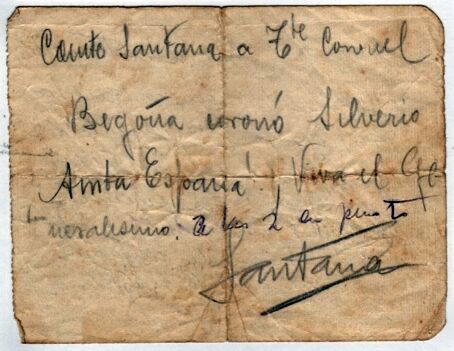 Comte Santana a Tte Coronel
Begoña coronó Silverio
Arriba España! ¡Viva el Ge
neralisimo! A las 2 en punto
Santana